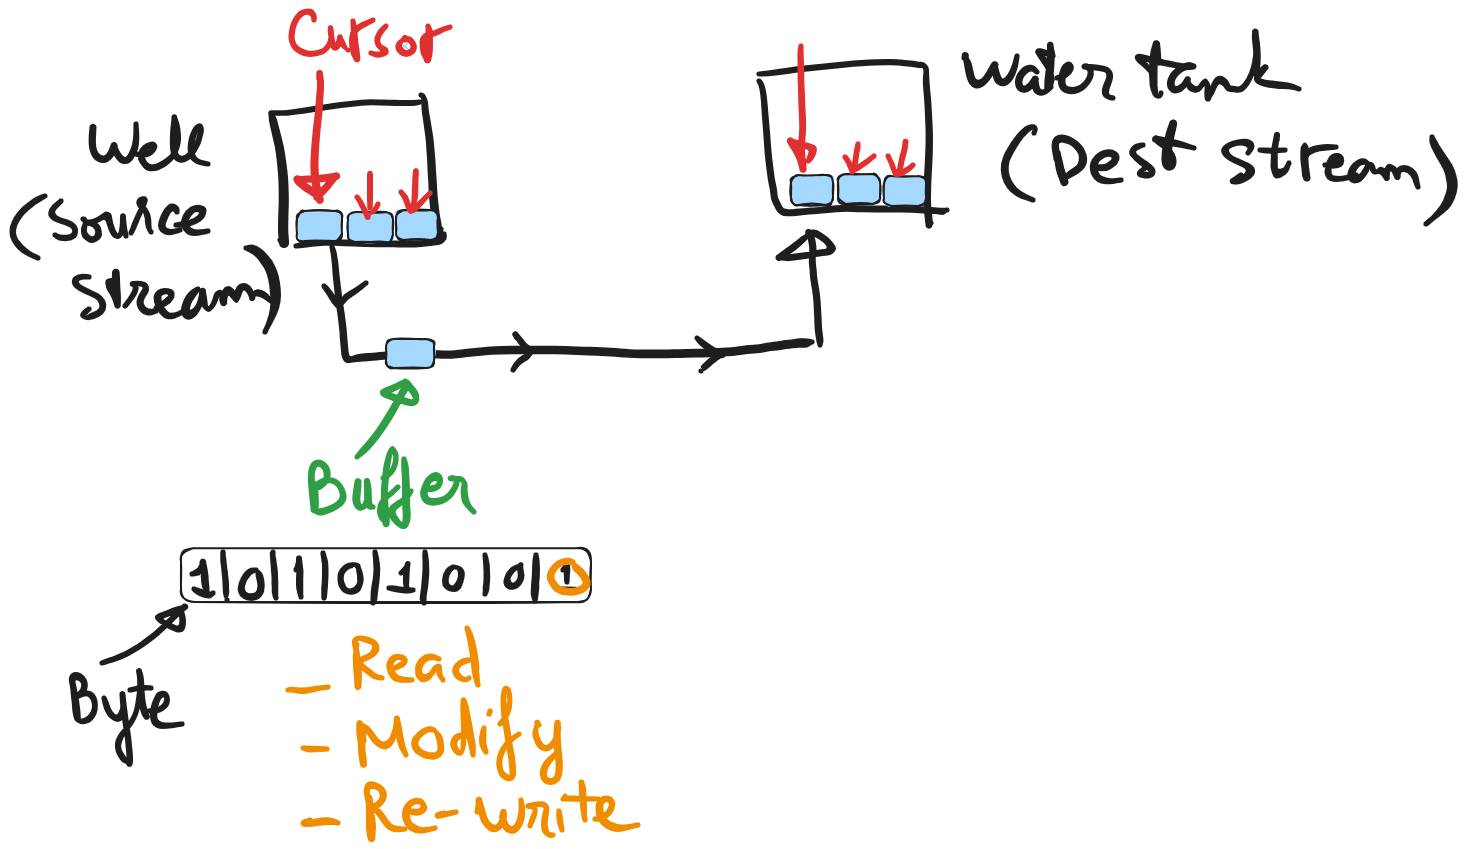 Cursor
Well
(Source
Stream)
Water tank
(Dest Stream)
Buffer
1 0 1 0 1 0 0 1
Byte
- Read
- Modify
- Re-write